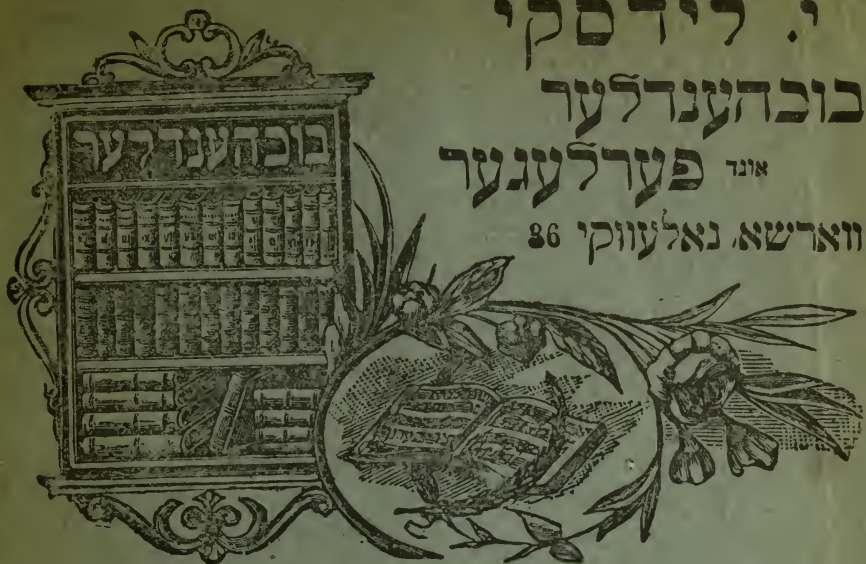 י. לידסקי
בוכהענדלער
אונד פערלעגער
ווארשא, נאלעווקי 36
בוכהענדלער